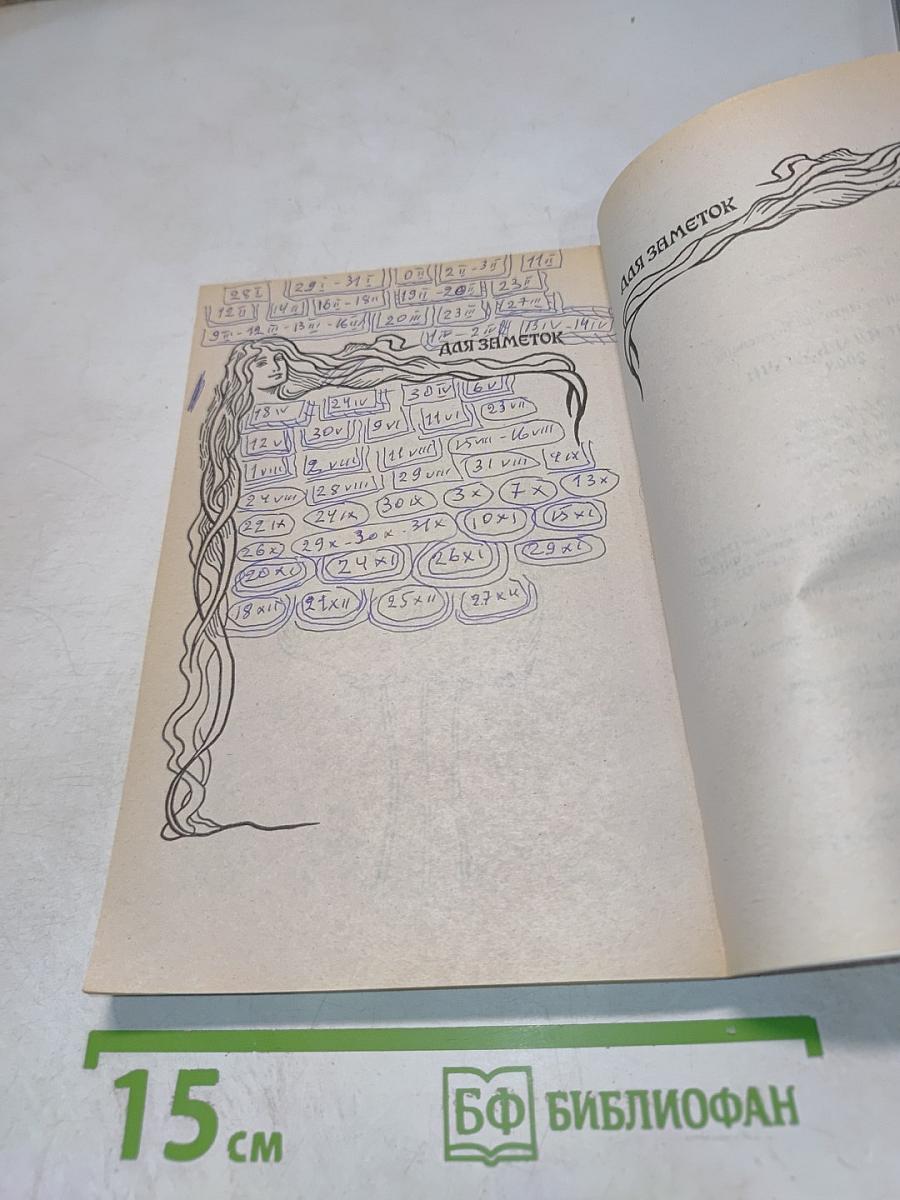 28 I 29 I - 31 I 0 II 2 II - 3 II 11 II
12 II 14 II 16 II - 18 II 19 II - 20 II 23 II
9 III - 12 III - 13 III - 16 III 20 III 23 III 27 III
1 IV - 2 IV 13 IV - 14 IV
ДЛЯ ЗАМЕТОК
18 IV 24 IV 30 IV 6 V
12 V 30 V 9 VI 11 VI 23 VII
1 VIII 2 VIII 11 VIII 15 VIII - 16 VIII
24 VIII 28 VIII 29 VIII 31 VIII 9 IX
22 IX 24 IX 30 IX 3 X 7 X 13 X
26 X 29 X - 30 X - 31 X 10 XI 15 XI
20 XI 24 XI 26 XI 29 XI
18 XII 21 XII 25 XII 27 XII
ДЛЯ ЗАМЕТОК
15 см
БФ БИБЛИОФАН